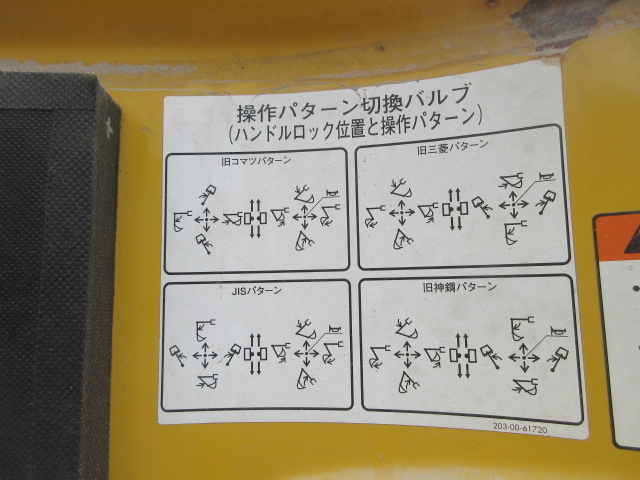 操作パターン切換バルブ
(ハンドルロック位置と操作パターン)
旧コマツパターン
旧三菱パターン
JISパターン
旧神鋼パターン
203-00-61720